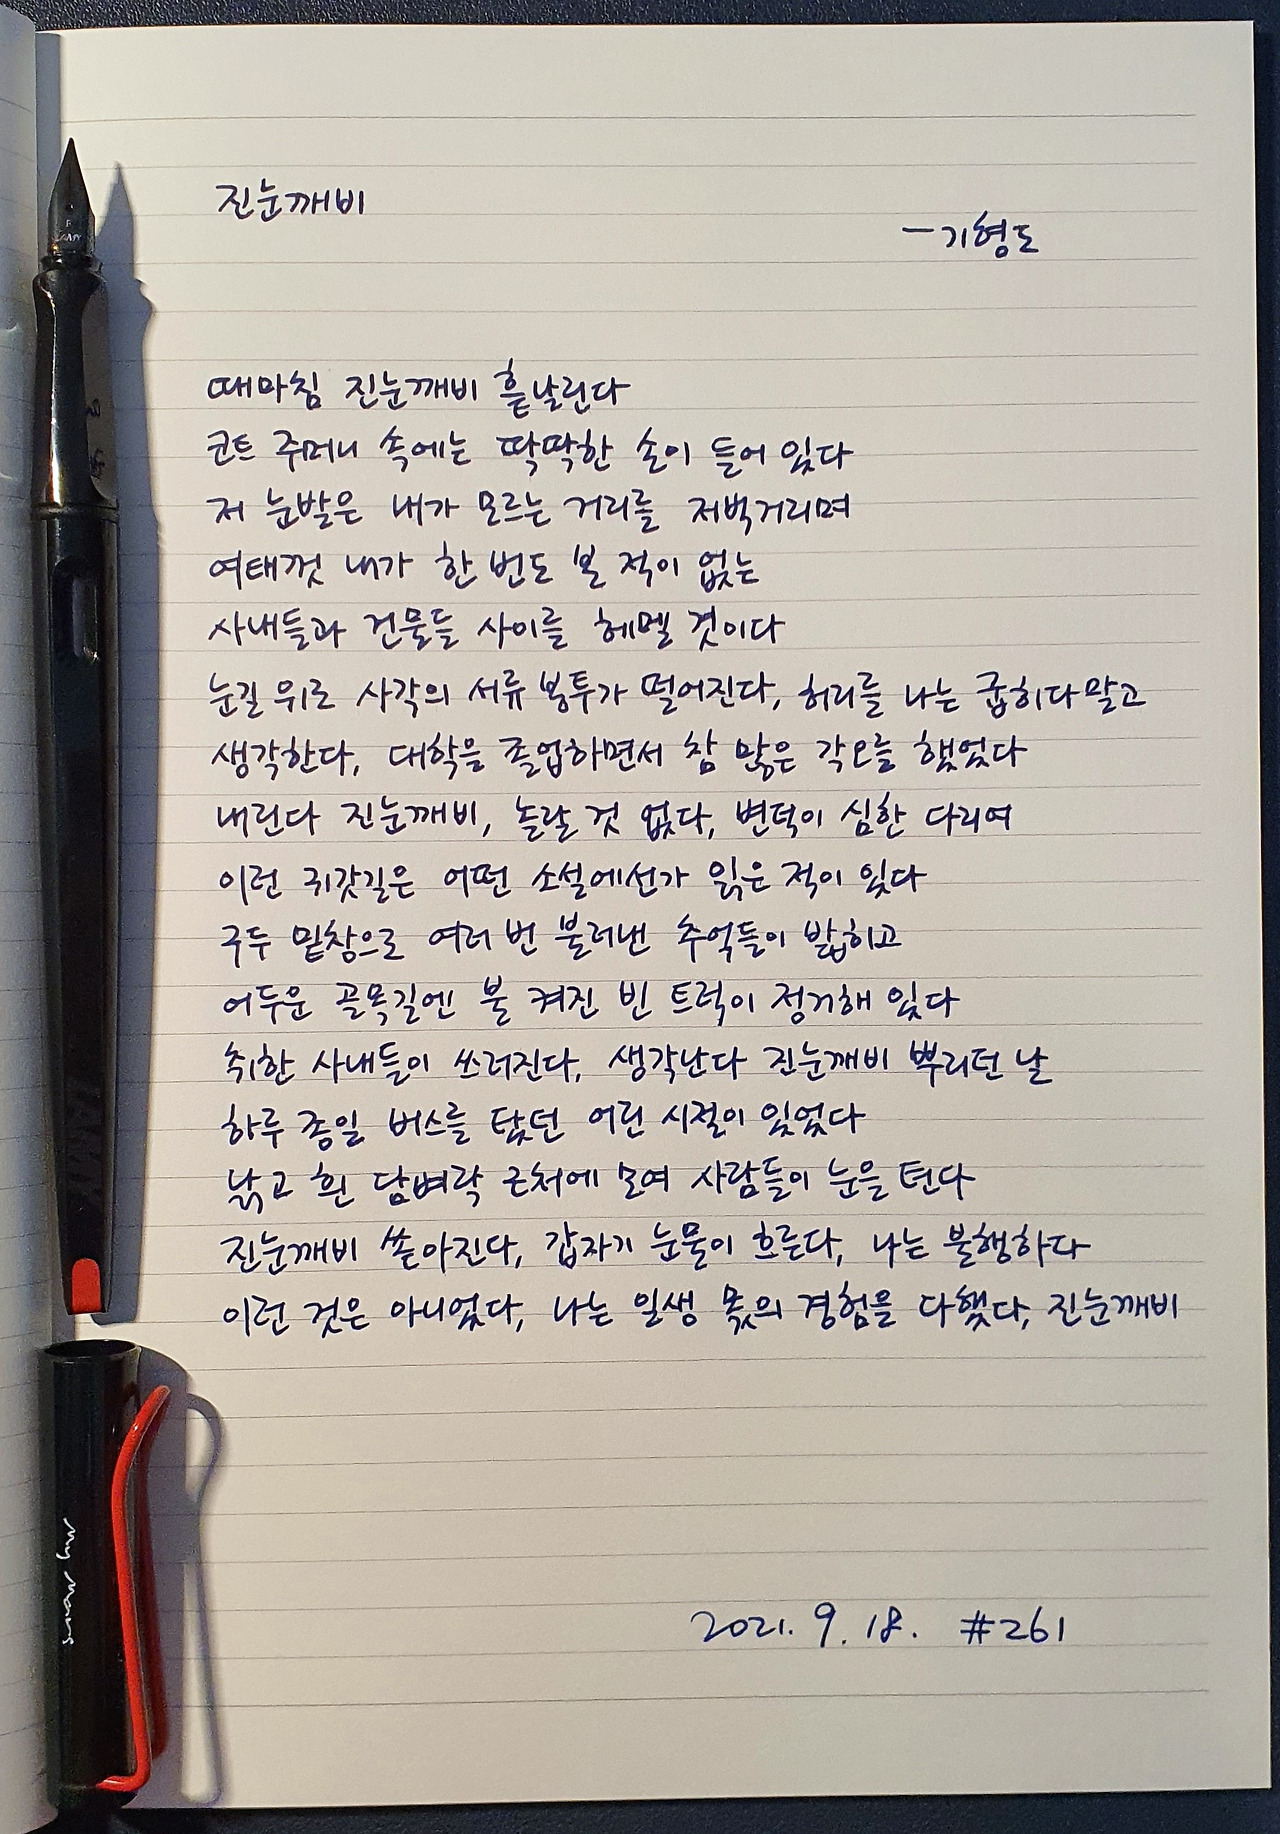 진눈깨비
- 기형도
때마침 진눈깨비 흩날린다
코트 주머니 속에는 딱딱한 손이 들어 있다
저 눈발은 내가 모르는 거리를 저벅거리며
여태껏 내가 한 번도 본 적이 없는
사내들과 건물들 사이를 헤멜 것이다
눈길 위로 사각의 서류 봉투가 떨어진다, 허리를 나는 굽히다 말고
생각한다, 대학을 졸업하면서 참 많은 각오를 했었다
내린다 진눈깨비, 놀랄 것 없다, 변덕이 심한 다리여
이런 귀갓길은 어떤 소설에선가 읽은 적이 있다
구두 밑창으로 여러 번 불러낸 추억들이 밟히고
어두운 골목길엔 불 켜진 빈 트럭이 정거해 있다
취한 사내들이 쓰러진다, 생각난다 진눈깨비 뿌리던 날
하루 종일 버스를 탔던 어린 시절이 있었다
낡고 흰 담벼락 근처에 모여 사람들이 눈을 턴다
진눈깨비 쏟아진다, 갑자기 눈물이 흐른다, 나는 불행하다
이런 것은 아니었다, 나는 일생 몫의 경험을 다했다, 진눈깨비
2021. 9. 18. #261
LAMY